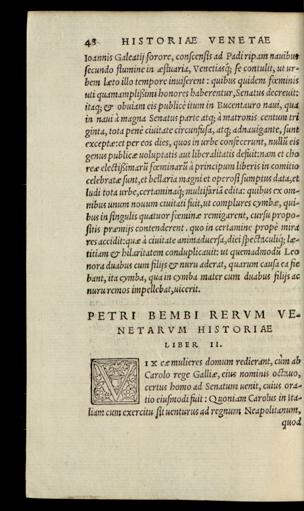 48 HISTORIAE VENETAE
Ioannis Galeatij sorore, conscensis ad Padi ripam nauibus
secundo flumine in æstuaria, Venetiasq; se contulit, ut ur-
bem Leto illo tempore inuiserent : quibus quidem fœminis
uti quamamplißimi honores haberentur, Senatus decreuit:
itaq; & obuiam eis publicè itum in Bucentauro naui, qua
in naui à magna Senatus parte atq; à matronis centum tri
ginta, tota penè ciuitate circunfusa, atq; adnauigante, sunt
exceptæ: et per eos dies, quos in urbe confecerunt, nullũ eis
genus publicæ uoluptatis aut liberalitatis defuit: nam et cho
reæ electißimarũ fœminarũ à principum liberis in comitio
celebratæ sunt, et bellaria magni et operosi sumptus data, et
ludi tota urbe, certaminaq; multifariã edita: quibus ex om-
nibus unum nouum ciuitati fuit, ut complures cymbæ, qui-
bus in singulis quatuor fœminæ remigarent, cursu propo-
sitis præmijs contenderent. quo in certamine propè mira
res accidit: quæ à ciuitate animaduersa, diei spectaculũq; læ-
titiam & hilaritatem conduplicauit: ut quemadmodũ Leo
nora duabus cum filijs & nuru aderat, quarum causa ea fie
bant, ita cymba, qua in cymba mater cum duabus filijs ac
nuru remos impellebat, uicerit.
PETRI BEMBI RERVM VE-
NETARVM HISTORIAE
LIBER II.
VIX eæ mulieres domum redierant, cùm ab
Carolo rege Galliæ, eius nominis octauo,
certus homo ad Senatum uenit, cuius ora-
tio eiusmodi fuit : Quoniam Carolus in Ita-
liam cum exercitu sit uenturus ad regnum Neapolitanum,
quod